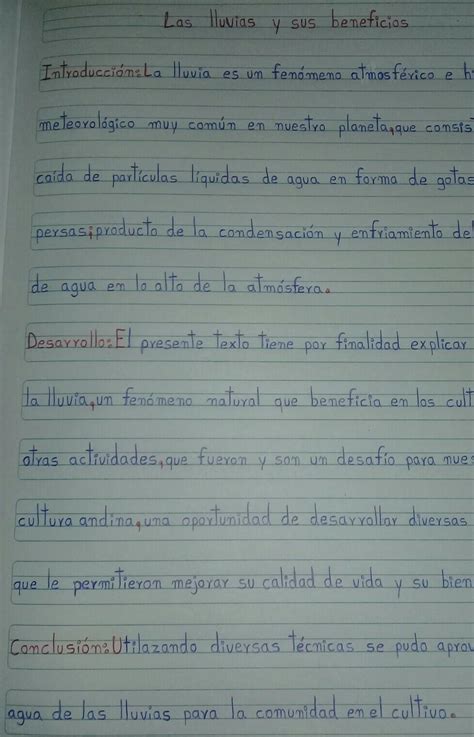 Las lluvias y sus beneficios
Introducción: La lluvia es un fenómeno atmosférico e hi
meteorológico muy común en nuestro planeta, que consis
caída de partículas líquidas de agua en forma de gotas
persas; producto de la condensación y enfriamiento de
de agua en lo alto de la atmósfera.
Desarrollo: El presente texto tiene por finalidad explicar
la lluvia, un fenómeno natural que beneficia en los cult
otras actividades, que fueron y son un desafío para nues
cultura andina, una oportunidad de desarrollar diversas
que le permitieron mejorar su calidad de vida y su bien
Conclusión: Utilazando diversas técnicas se pudo aprov
agua de las lluvias para la comunidad en el cultivo.